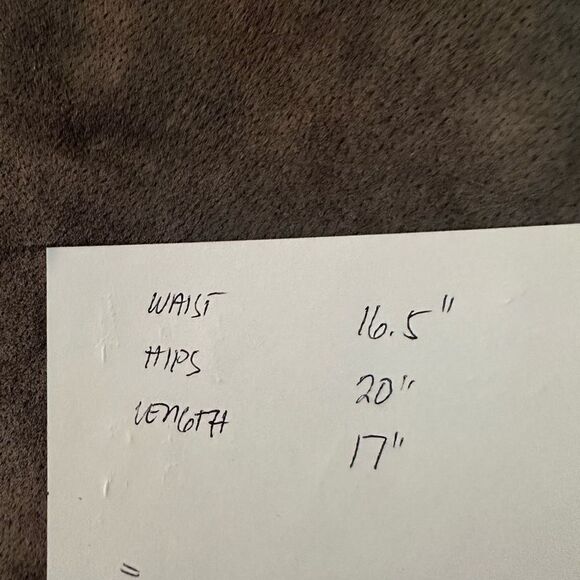 WAIST 16.5"
HIPS 20"
LENGTH 17"